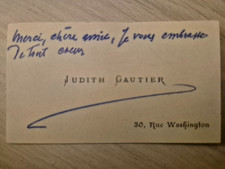 Merci, chère amie, je vous embrasse
de tout coeur
JUDITH GAUTIER
30, Rue Washington